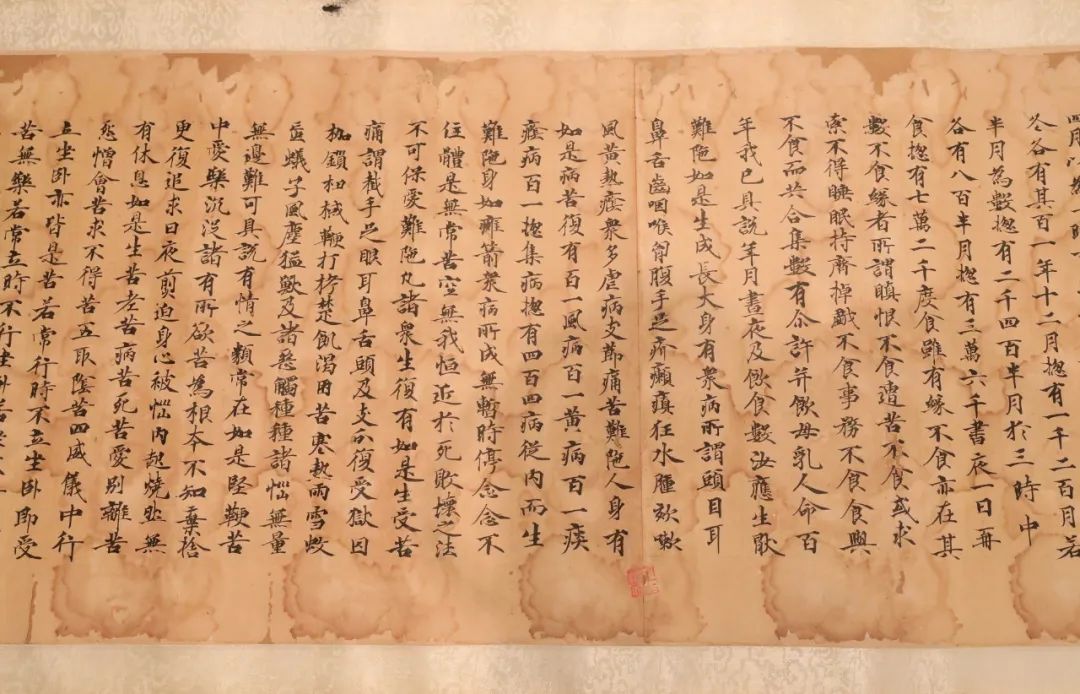 四月以
冬各有其百一年十二月惣有一千二百月若
半月為數惣有二千四百半月於三時中
各有八百半月惣有三萬六千晝夜一日再
食惣有七萬二千度食雖有緣不食亦在其
數不食緣者所謂瞋恨不食遭苦不食或求
索不得睡眠持齋掉戲不食事務不食食與
不食而共合集數有尒許并飲母乳人命百
年我已具說年月晝夜及飲食數汝應生厭
難陁如是生成長大身有衆病所謂頭目耳
鼻舌齒咽喉胷腹手足疥癩癲狂水腫欬嗽
風黃熱癊衆多瘧病支節痛苦難陁人身有
如是病苦復有百一風病百一黃病百一痰
癊病百一揔集病揔有四百四病從內而生
難陁身如癰箭衆病所成無暫時停念念不
住體是無常苦空無我恒近於死敗壞之法
不可保愛難陁凡諸衆生復有如是生受苦
痛謂截手足眼耳鼻舌頭及支分復受獄囚
枷鎖杻械鞭打拷楚飢渴困苦寒熱雨雪蚊
䖟蟻子風塵猛獸及諸惡觸種種諸惱無量
無邊難可具說有情之類常在如是堅鞕苦
中愛樂沉沒諸有所欲苦為根本不知棄捨
更復追求日夜煎迫身心被惱內起燒然無
有休息如是生苦老苦病苦死苦愛別離苦
怨憎會苦求不得苦五取陰苦四威儀中行
立坐卧亦皆是苦若常行時不立坐卧即受
苦無樂若常立時不行坐卧若